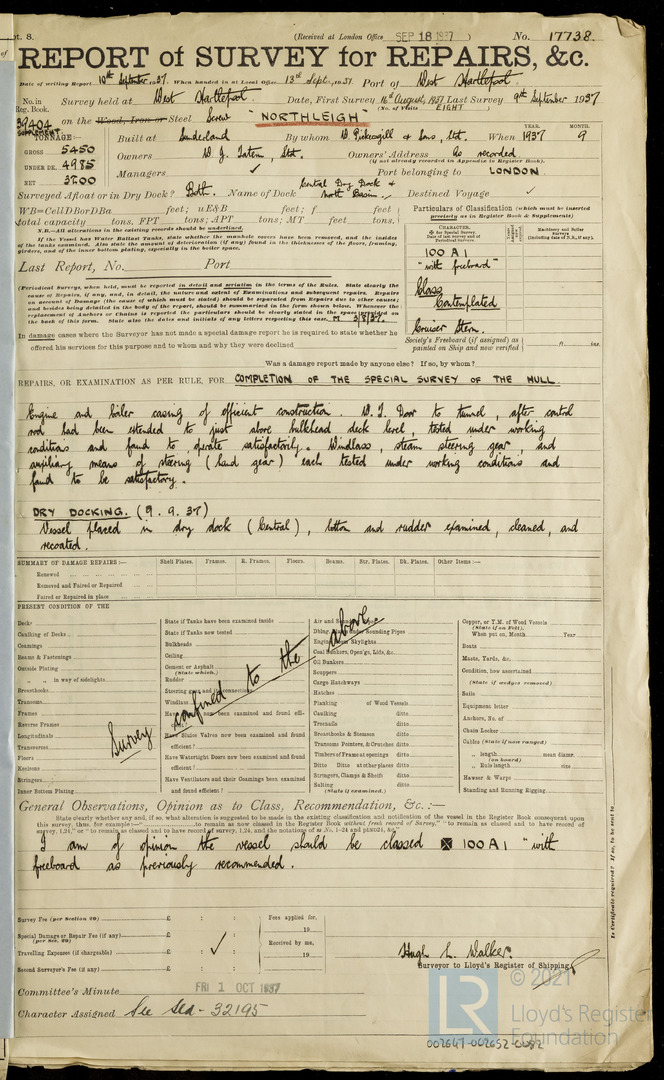 pt. 8.
(Received at London Office SEP 18 1937 )
No. 17738.
REPORT of SURVEY for REPAIRS, &c.
Date of writing Report 10th September 1937. When handed in at Local Office 13th Sept. 1937. Port of West Hartlepool.
No. in Reg. Book. Survey held at West Hartlepool. Date, First Survey 16th August, 1937 Last Survey 9th September 1937
(No. of Visits EIGHT )
39404 on the Wood, Iron or Steel Screw "NORTHLEIGH"
SUPPLEMENT
TONNAGE:— Built at Sunderland By whom W. Pickersgill & Sons, Ltd. When 1937 YEAR. MONTH. 9
GROSS 5450
UNDER DK. 4985
NET 3200
Owners W. J. Tatem, Ltd. Owners' Address As recorded.
(if not already recorded in Appendix to Register Book).
Managers Port belonging to LONDON
Surveyed Afloat or in Dry Dock? Both. Name of Dock Central Dry Dock & North Basin. Destined Voyage
WB=CellDBorDBa feet; uE&B feet; f feet;
total capacity tons. FPT tons; APT tons; MT feet, tons,
N.B.—All alterations in the existing records should be underlined.
If the Vessel has Water Ballast Tanks, state whether the manhole covers have been removed, and the insides
of the tanks examined. Also state the amount of deterioration (if any) found in the thicknesses of the floors, framing,
girders, and of the inner bottom plating, especially in the boiler space.
Particulars of Classification (which must be inserted
precisely as in Register Book & Supplements)
CHARACTER.
✠ for Special Survey.
Date of last survey and of
Periodical Surveys.
Machinery and Boiler
Surveys
(including date of N.B., if any).
100 A1
"with freeboard"
Class
Contemplated
Cruiser Stern.
Society's Freeboard (if assigned) as
painted on Ship and now verified ft. ins.
Last Report, No. Port
(Periodical Surveys, when held, must be reported in detail and seriatim in the terms of the Rules. State clearly the
cause of Repairs, if any, and, in detail, the nature and extent of Examinations and subsequent repairs. Repairs
on account of Damage (the cause of which must be stated) should be separated from Repairs due to other causes;
and besides being detailed in the body of the report, should be summarized in the form shewn below. Whenever the
replacement of Anchors or Chains is reported the particulars should be clearly stated in the space provided on
the back of this form. State also the dates and initials of any letters respecting this case. M 3/8/37.
In damage cases where the Surveyor has not made a special damage report he is required to state whether he
offered his services for this purpose and to whom and why they were declined
Was a damage report made by anyone else? If so, by whom?
REPAIRS, OR EXAMINATION AS PER RULE, FOR COMPLETION OF THE SPECIAL SURVEY OF THE HULL
Engine and boiler casing of efficient construction. W.T. Door to tunnel, after control
rod had been extended to just above bulkhead deck level, tested under working
conditions and found to operate satisfactorily. Windlass, steam steering gear, and
auxiliary means of steering (hand gear) each tested under working conditions and
found to be satisfactory.
DRY DOCKING. (9. 9. 37)
Vessel placed in dry dock (Central), bottom and rudder examined, cleaned, and
recoated.
SUMMARY OF DAMAGE REPAIRS:— Shell Plates. Frames. R. Frames. Floors. Beams. Str. Plates. Dk. Plates. Other Items:—
Renewed
Removed and Faired or Repaired
Faired or Repaired in place
PRESENT CONDITION OF THE
Decks
Caulking of Decks
Coamings
Beams & Fastenings
Outside Plating
" " in way of sidelights
Breasthooks
Transoms
Frames
Reverse Frames
Longitudinals
Transverses
Floors
Keelsons
Stringers
Inner Bottom Plating
State if Tanks have been examined inside
State if Tanks now tested
Bulkheads
Ceiling
Cement or Asphalt
(State which.)
Rudder
Steering gear and its connections
Windlass
Have been now examined and found effi-
cient?
Have Sluice Valves now been examined and found
efficient?
Have Watertight Doors now been examined and found
efficient?
Have Ventilators and their Coamings been examined
and found efficient?
Air and Sounding Pipes
Dblng. under Sounding Pipes
Engine Room Skylights
Coal Bunkers, Open'gs, Lids, &c.
Oil Bunkers
Scuppers
Cargo Hatchways
Hatches
Planking of Wood Vessels
Caulking ditto
Treenails ditto
Breasthooks & Stemson ditto
Transoms Pointers, & Crutches ditto
Timbers of Frame at openings ditto
Ditto Ditto at other places ditto
Stringers, Clamps & Shelfs ditto
Salting ditto
(State if examined.)
Copper, or Y.M. of Wood Vessels
(State if on Felt).
When put on, Month Year
Boats
Masts, Yards, &c.
Condition, how ascertained
(State if wedges removed)
Sails
Equipment letter
Anchors, No. of
Chain Locker
Cables (State if now ranged)
" length mean diamr.
(on board)
" Rule length size
Hawser & Warps
Standing and Running Rigging
Survey confined to the above
General Observations, Opinion as to Class, Recommendation, &c. :—
State clearly whether any and, if so, what alteration is suggested to be made in the existing classification and notification of the vessel in the Register Book consequent upon
this survey, thus, for example:—" to remain as now classed in the Register Book without fresh record of Survey," "to remain as classed and to have record of
survey, 1,24," or "to remain as classed and to have record of survey, 1,24, and the notations of ss No. 1-24 and ptND24, &c."
I am of opinion the vessel should be classed ✠ 100 A1 "with
freeboard as previously recommended.
Survey Fee (per Section 29) £ : :
Special Damage or Repair Fee (if any) £ : :
(per Sec. 29)
Travelling Expenses (if chargeable) £ : :
Second Surveyor's Fee (if any) £ : :
Fees applied for,
19
Received by me,
19
Hugh L. Walker.
Surveyor to Lloyd's Register of Shipping
Committee's Minute FRI 1 OCT 1937
Character Assigned See Sld - 32195
Is Certificate required? If so, to be sent to
LR
© 2021
Lloyd's Register
Foundation
002647-002652-0082